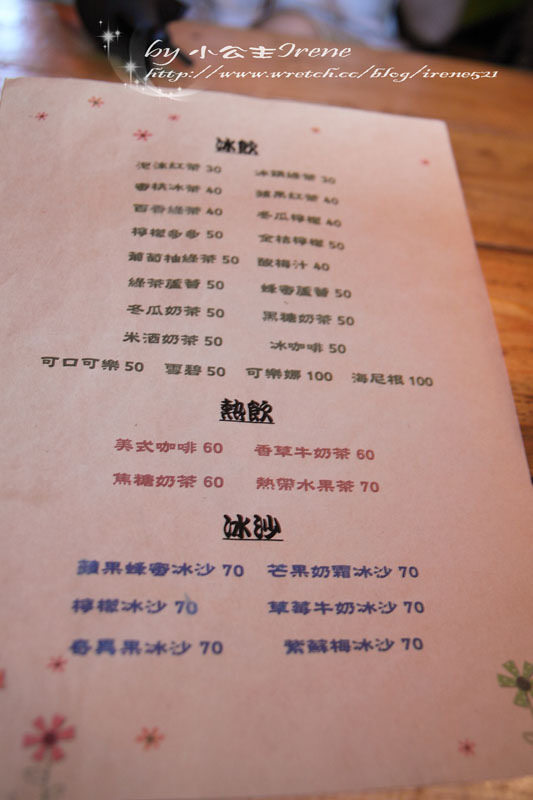 by 小公主Irene
http://www.wretch.cc/blog/irene521
冰飲
泡沫紅茶 30 冰鎮綠茶 30
蜜桃冰茶 40 蘋果紅茶 40
百香綠茶 40 冬瓜檸檬 40
檸檬多多 50 金桔檸檬 50
葡萄柚綠茶 50 酸梅汁 40
綠茶蘆薈 50 蜂蜜蘆薈 50
冬瓜奶茶 50 黑糖奶茶 50
米酒奶茶 50 冰咖啡 50
可口可樂 50 雪碧 50 可樂娜 100 海尼根 100
熱飲
美式咖啡 60 香草牛奶茶 60
焦糖奶茶 60 熱帶水果茶 70
冰沙
蘋果蜂蜜冰沙 70 芒果奶霜冰沙 70
檸檬冰沙 70 草莓牛奶冰沙 70
奇異果冰沙 70 紫蘇梅冰沙 70